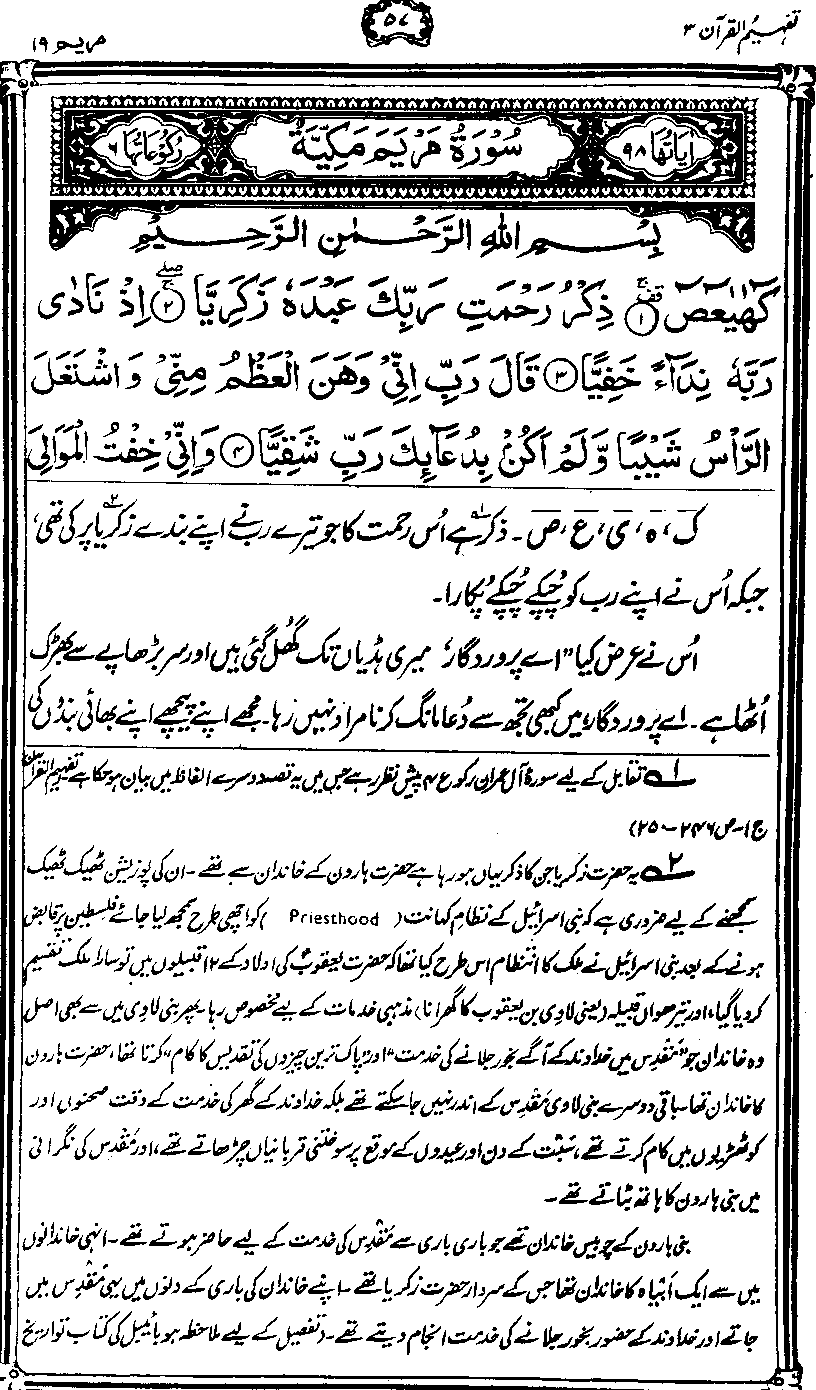 تفہیم القرآن ۳
۵۷
مریم ۱۹
اٰیاتُہَا ۹۸
سُوْرَةُ مَرْيَمَ مَكِّيَّةٌ
رُکُوْعَاتُہَا ۶
بِسْمِ اللهِ الرَّحْمٰنِ الرَّحِيْمِ
كٓهٰيٰعٓصٓ ۚ۟ ﴿۱﴾ ذِكْرُ رَحْمَتِ رَبِّكَ عَبْدَهٗ زَكَرِيَّا ۖۚ ﴿۲﴾ اِذْ نَادٰى
رَبَّهٗ نِدَآءً خَفِيًّا ﴿۳﴾ قَالَ رَبِّ اِنِّيْ وَهَنَ الْعَظْمُ مِنِّيْ وَاشْتَعَلَ
الرَّاْسُ شَيْبًا وَّلَمْ اَكُنْۢ بِدُعَآئِكَ رَبِّ شَقِيًّا ﴿۴﴾ وَاِنِّيْ خِفْتُ الْمَوَالِيَ
ک، ہ، ی، ع، ص۔ ذکر۱؎ ہے اُس رحمت کا جو تیرے رب نے اپنے بندے زکریا۲؎ پر کی تھی،
جبکہ اُس نے اپنے رب کو چُپکے چُپکے پُکارا۔
اُس نے عرض کیا ”اے پروردگار، میری ہڈیاں تک گھُل گئی ہیں اور سر بڑھاپے سے بھڑک
اُٹھا ہے۔ اے پروردگار، میں کبھی تجھ سے دُعا مانگ کر نامراد نہیں رہا۔ مجھے اپنے پیچھے اپنے بھائی بندوں کی
۱؎ تقابل کے لیے سورۂ آل عمران رکوع ۴ پیش نظر رہے جس میں یہ قصہ دوسرے الفاظ میں بیان ہو چکا ہے (تفہیم القرآن
ج ۱۔ ص ۲۴۶۔۲۵۰)
۲؎ یہ حضرت زکریا جن کا ذکر یہاں ہو رہا ہے حضرت ہارون کے خاندان سے تھے۔ ان کی پوزیشن ٹھیک ٹھیک
سمجھنے کے لیے ضروری ہے کہ بنی اسرائیل کے نظامِ کہانت (Priesthood) کو اچھی طرح سمجھ لیا جائے۔ فلسطین پر قابض
ہونے کے بعد بنی اسرائیل نے ملک کا انتظام اس طرح کیا تھا کہ حضرت یعقوبؑ کی اولاد کے ۱۲ قبیلوں میں تو سارا ملک تقسیم
کر دیا گیا، اور تیرھواں قبیلہ (یعنی لاوی بن یعقوب کا گھرانا) مذہبی خدمات کے لیے مخصوص رہا۔ پھر بنی لاوی میں سے بھی اصل
وہ خاندان جو ”مَقْدِس میں خداوند کے آگے بخور جلانے کی خدمت“ اور ”پاک ترین چیزوں کی تقدیس کا کام“ کرتا تھا، حضرت ہارون
کا خاندان تھا۔ باقی دوسرے بنی لاوی مَقْدِس کے اندر نہیں جا سکتے تھے بلکہ خداوند کے گھر کی خدمت کے وقت صحنوں اور
کوٹھڑیوں میں کام کرتے تھے، سَبْت کے دن اور عیدوں کے موقع پر سوختنی قربانیاں چڑھاتے تھے، اور مَقْدِس کی نگرانی
میں بنی ہارون کا ہاتھ بٹاتے تھے۔
بنی ہارون کے چوبیس خاندان تھے جو باری باری سے مَقْدِس کی خدمت کے لیے حاضر ہوتے تھے۔ انہی خاندانوں
میں سے ایک اَبیاہ کا خاندان تھا جس کے سردار حضرت زکریا تھے۔ اپنے خاندان کی باری کے دنوں میں یہی مَقْدِس میں
جاتے اور خداوند کے حضور بخور جلانے کی خدمت انجام دیتے تھے۔ (تفصیل کے لیے ملاحظہ ہو بائیبل کی کتاب تواریخ